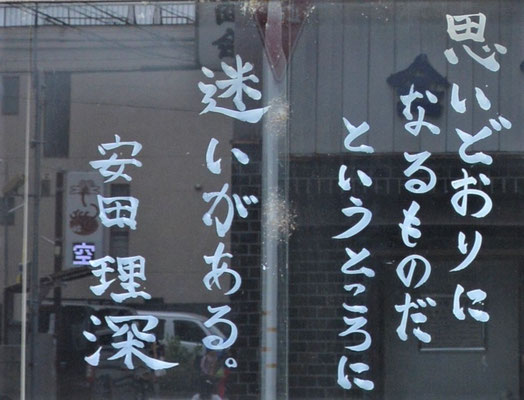 思いどおりに
なるものだ
というところに
迷いがある。
安田理深
空